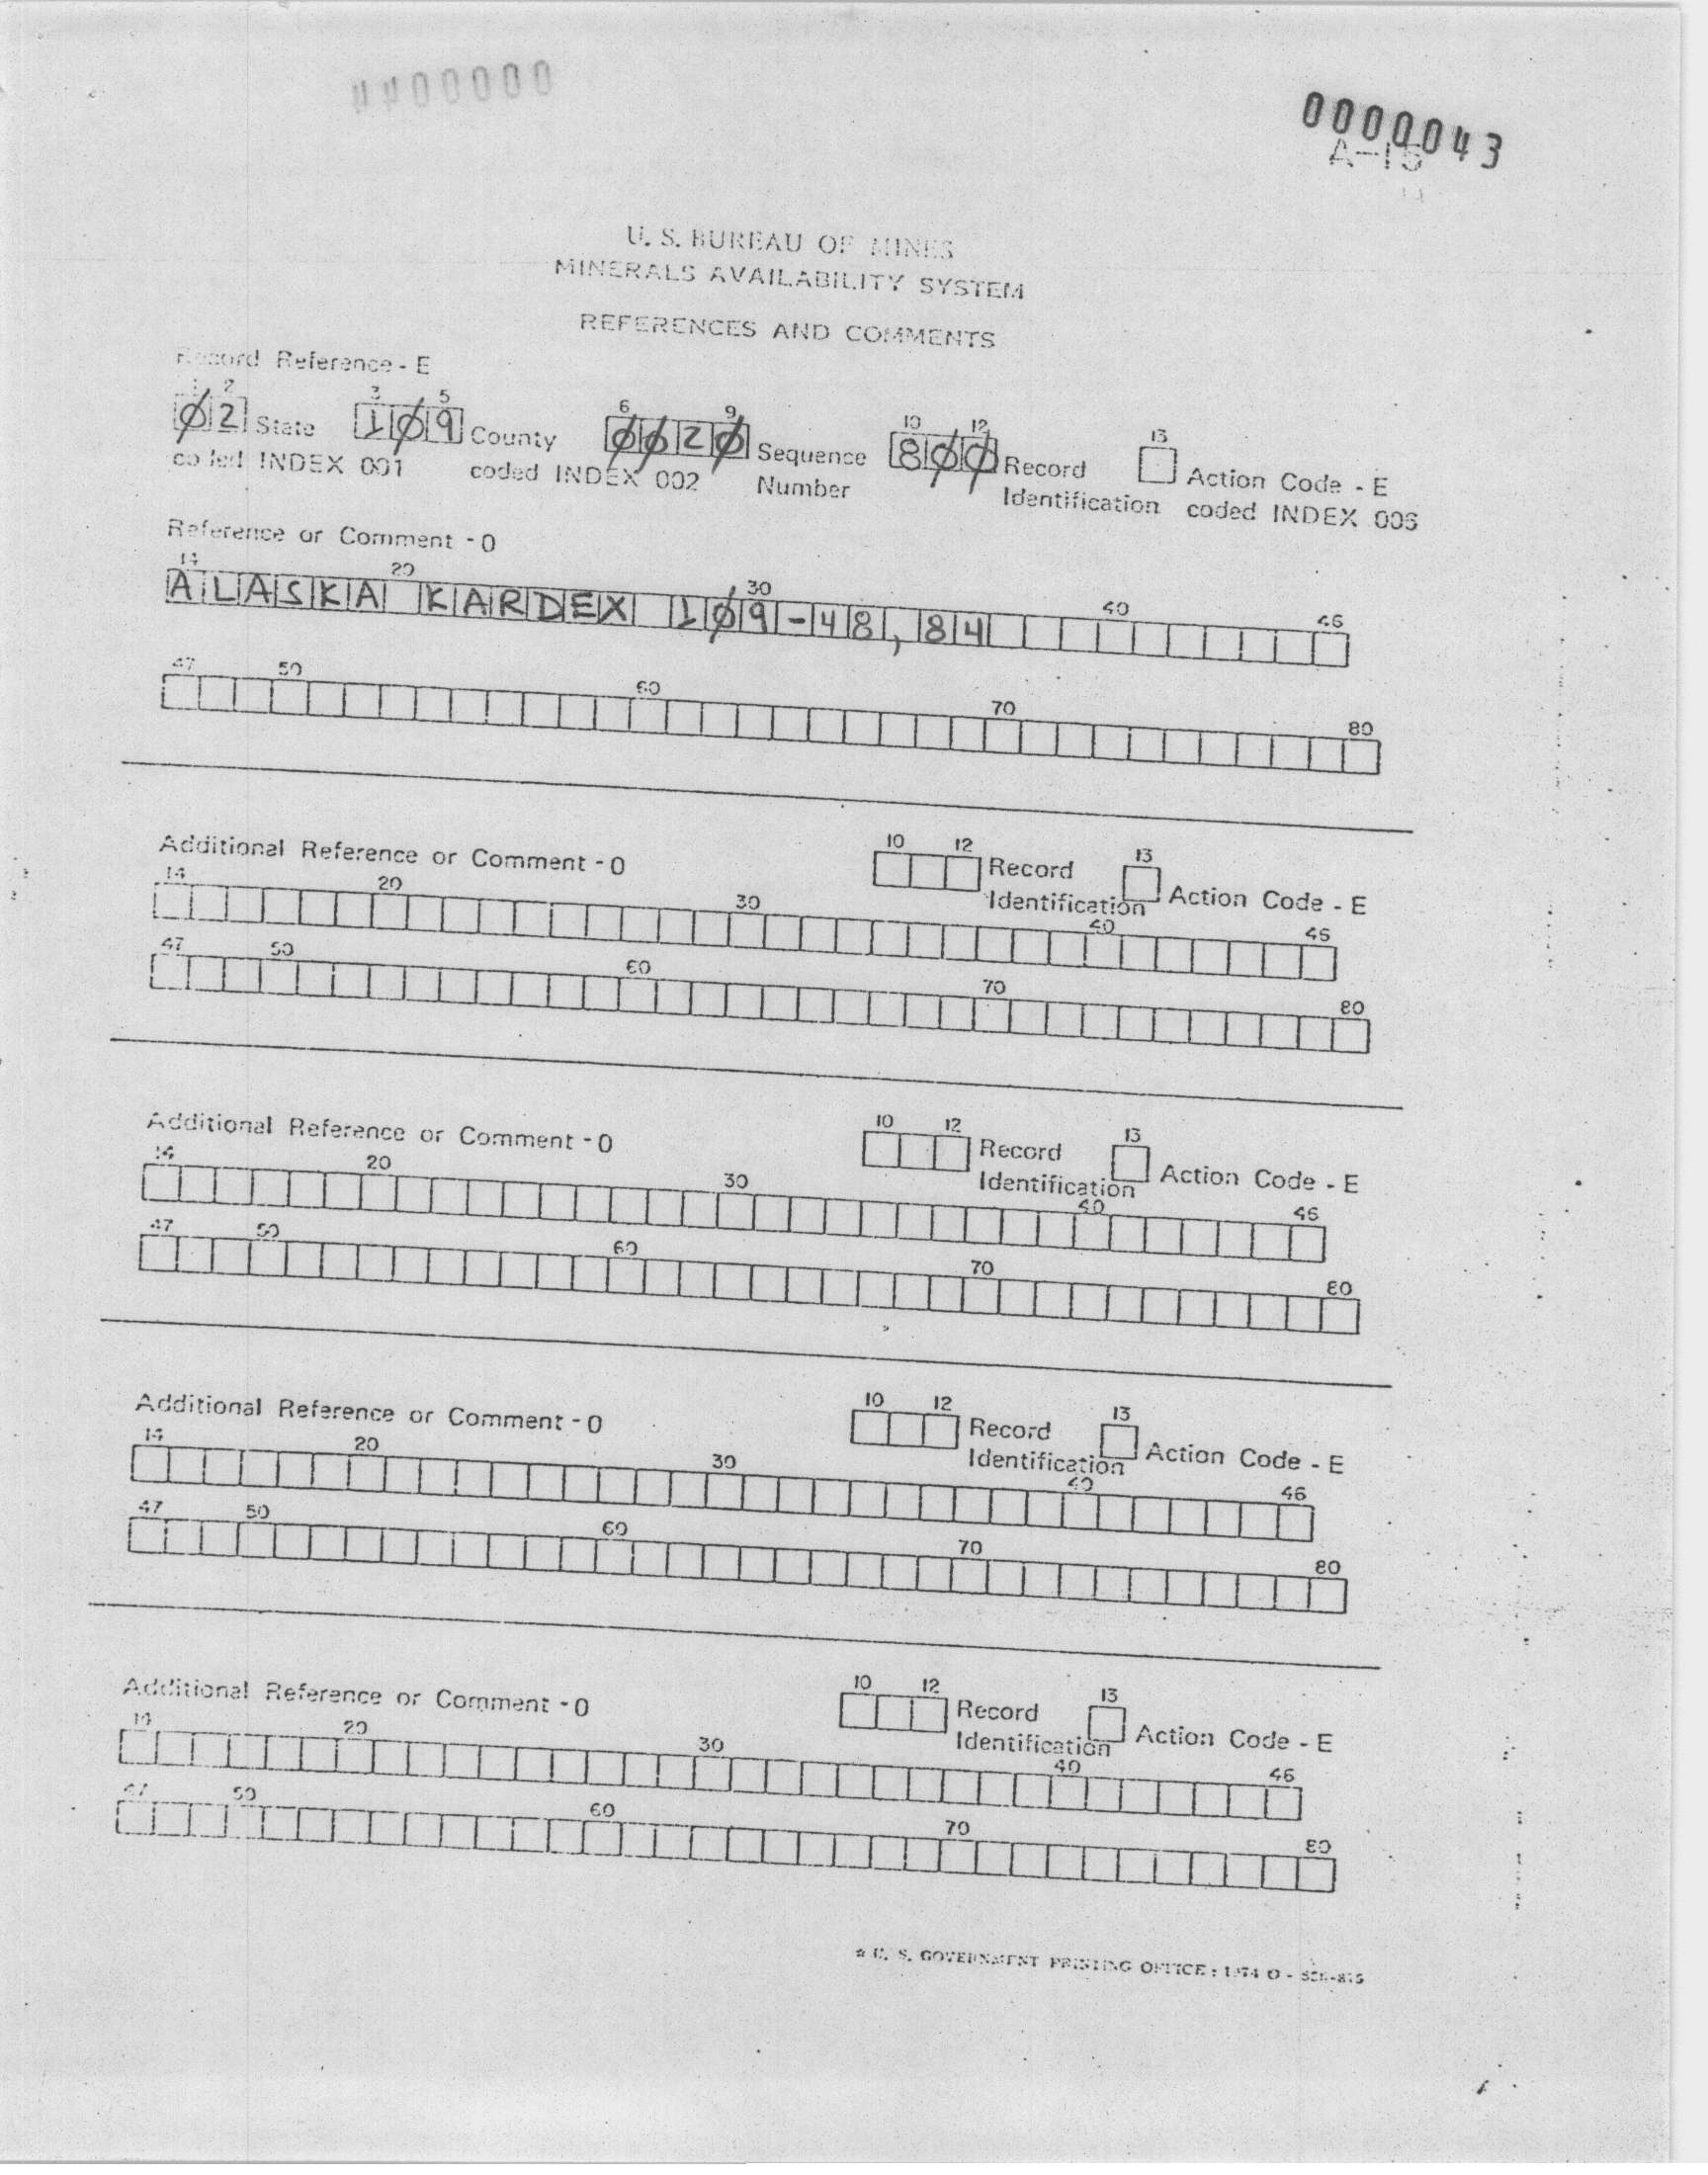 0000043
A-15
U. S. BUREAU OF MINES
MINERALS AVAILABILITY SYSTEM
REFERENCES AND COMMENTS
Record Reference - E
1 2 3 5 6 9 10 12 13
Ø2 State 1Ø9 County ØØ2Ø Sequence 8ØØ Record Action Code - E
coded INDEX 001 coded INDEX 002 Number Identification coded INDEX 006
Reference or Comment - O
14 20 30 40 46
ALASKA KARDEX 1Ø9-48,84
47 50 60 70 80
Additional Reference or Comment - O 10 12 Record 13
Identification Action Code - E
14 20 30 40 46
47 50 60 70 80
Additional Reference or Comment - O 10 12 Record 13
Identification Action Code - E
14 20 30 40 46
47 50 60 70 80
Additional Reference or Comment - O 10 12 Record 13
Identification Action Code - E
14 20 30 40 46
47 50 60 70 80
Additional Reference or Comment - O 10 12 Record 13
Identification Action Code - E
14 20 30 40 46
47 50 60 70 80
☆ U. S. GOVERNMENT PRINTING OFFICE : 1974 O -